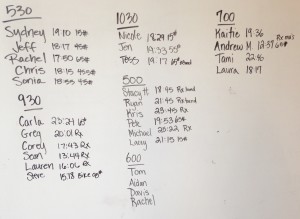 530
Sydney 19:10 15#
Jeff 18:17 45#
Rachel 17:50 65#
Chris 18:15 45#
Sonia 18:55 45#
930
Carla 23:29 65#
Greg 20:01 Rx
Corey 17:43 Rx
Sean 13:49 Rx
Lauren 16:06 Rx
Steve 15:18
1030
Nicole 18:29 15#
Jen 19:33 55#
Tess 19:17 65#
500
Stacy H 18:45 Rx band
Ryan 21:45 Rx band
Kris 23:45 Rx
Pete 19:53 65#
Michael 23:22 Rx
Lacey 21:15 15#
600
Tom
Aidan
Davis
Rachel
700
Kaitie 19:36
Andrew M 12:37
Tami 22:16
Laura 18:17